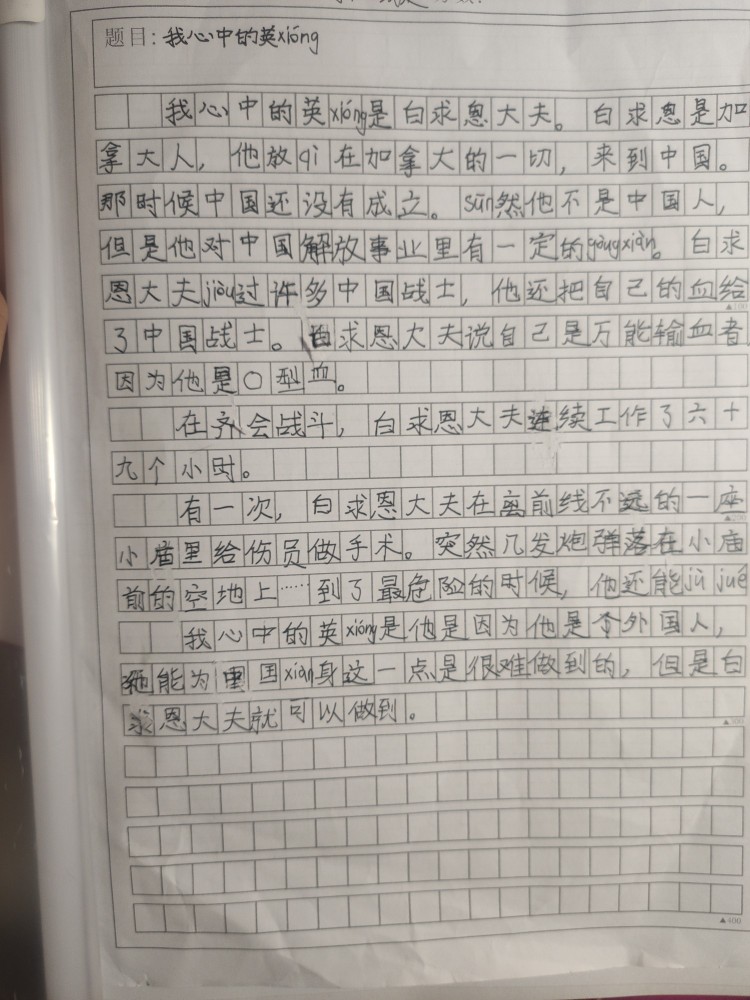 题目：我心中的英xióng
我心中的英xióng是白求恩大夫。白求恩是加
拿大人，他放qì在加拿大的一切，来到中国。
那时候中国还没有成立。suī然他不是中国人，
但是他对中国解放事业里有一定的gòngxiàn。白求
恩大夫jiù过许多中国战士，他还把自己的血给
▲100
了中国战士。白求恩大夫说自己是万能输血者
因为他是O型血。
在齐会战斗，白求恩大夫连续工作了六十
九个小时。
有一次，白求恩大夫在离前线不远的一座
▲200
小庙里给伤员做手术。突然几发炮弹落在小庙
前的空地上……到了最危险的时候，他还能jù jué
我心中的英xióng是他是因为他是个外国人，
他能为中国xiàn身这一点是很难做到的，但是白
求恩大夫就可以做到。
▲300
▲400